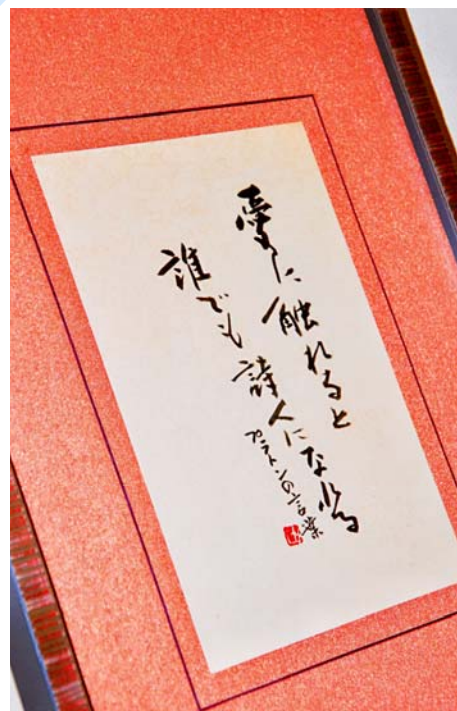 愛に触れると
誰でも詩人になる
プラトンの言葉